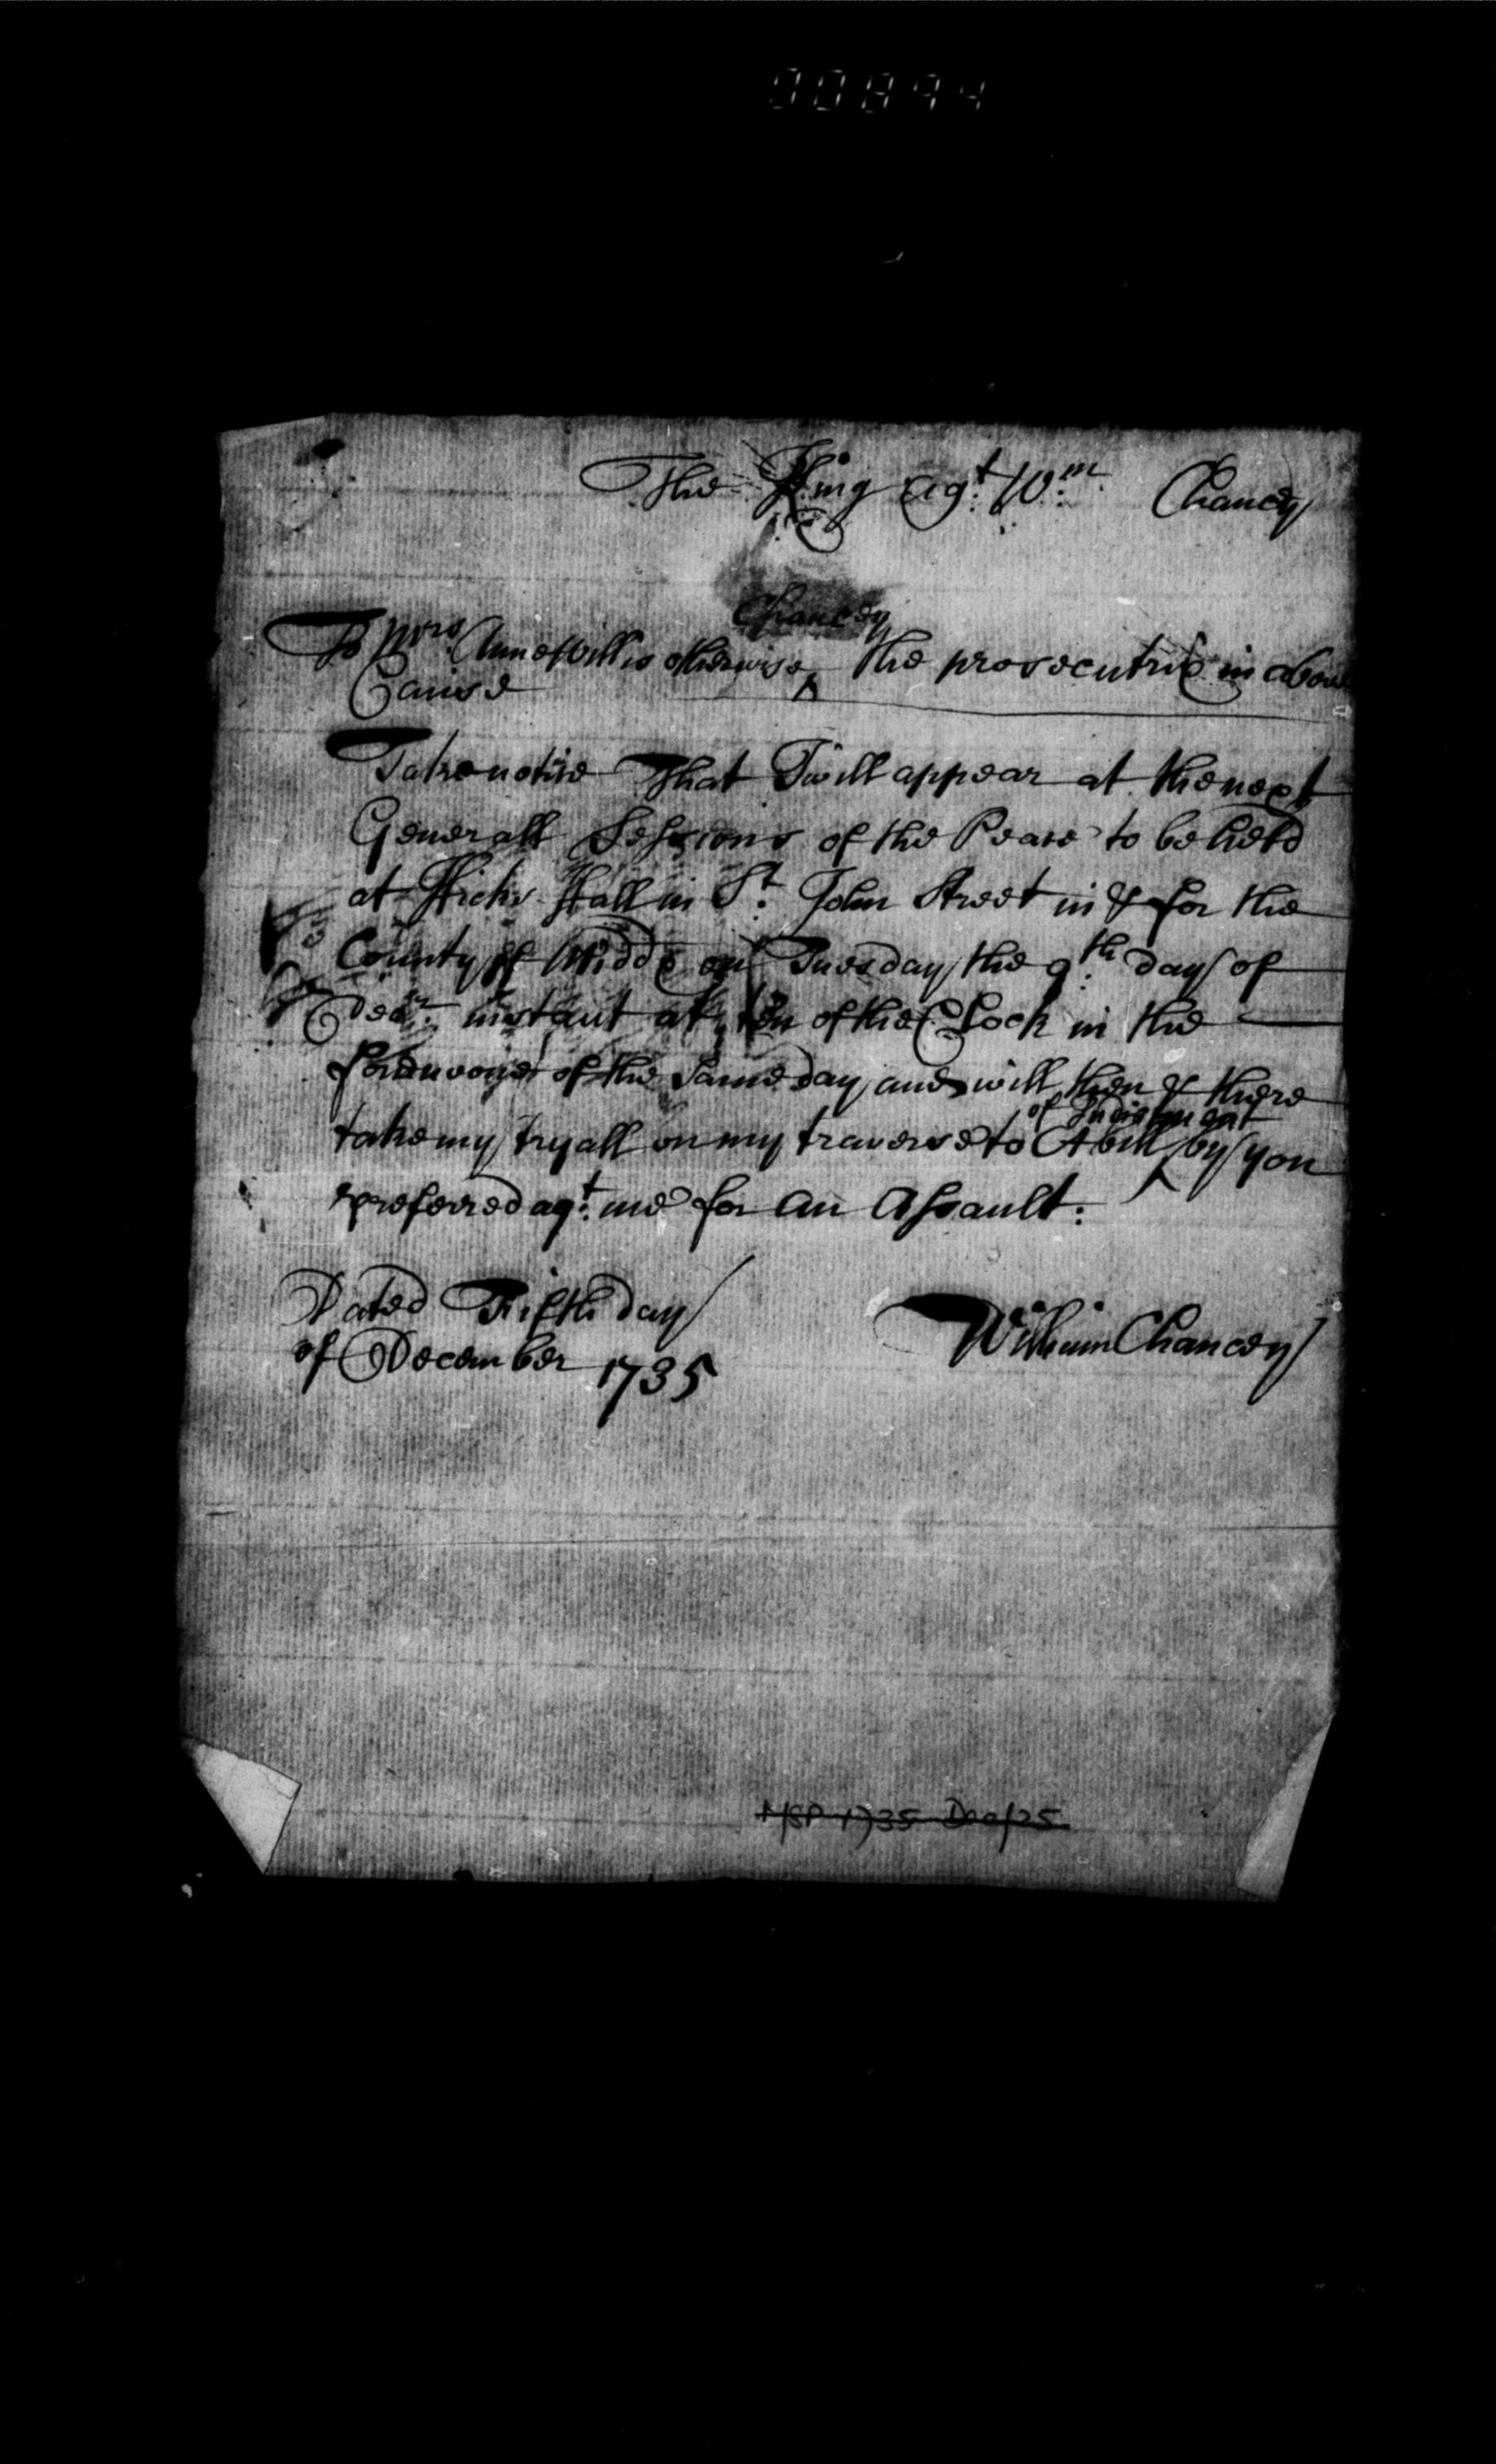 00894
The King agt. Wm. Chancey
Chancey
To Mrs Anne Willis otherwise ^ the prosecutrix in above
Cause
Take notice That I will appear at the next
Generall Sessions of the Peace to be held
at Hicks Hall in St. John Street in & for the
County of Middx on Tuesday the 9th. day of
Decr. instant at ten of the Clock in the
forenoone of the same day and will then & there
of Indictment
take my tryall on my traverse to A bill ^ by you
preferred agt. me for an Assault:
Dated Fifth day
of December 1735
William Chancey
MSP 1735 Dec/25